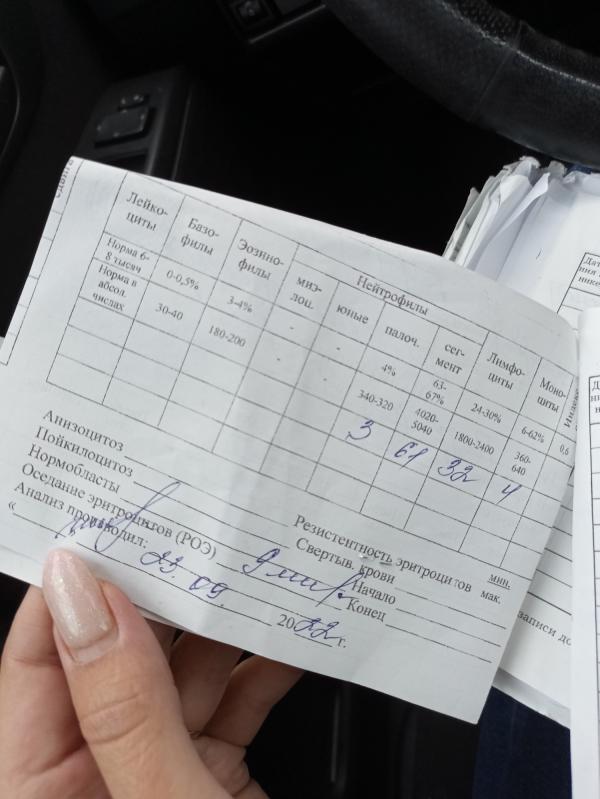 Лейко-
циты
Базо-
филы
Эозино-
филы
Нейтрофилы
миэ-
лоц.
юные
палоч.
сег-
мент
Лимфо-
циты
Моно-
циты
Норма 6-
8 тысяч
0-0,5%
3-4%
-
-
4%
63-
67%
24-30%
6-62%
0,6
Норма в
абсол.
числах
30-40
180-200
-
-
340-320
4020-
5040
1800-2400
360-
640
3 61 32 4
Анизоцитоз
Пойкилоцитоз
Нормобласты
Оседание эритроцитов (РОЭ) 9 мм/ч.
Анализ производил:
« 23. 09. 2022г.
Резистентность эритроцитов мин.
мак.
Свертыв. крови
Начало
Конец
записи до